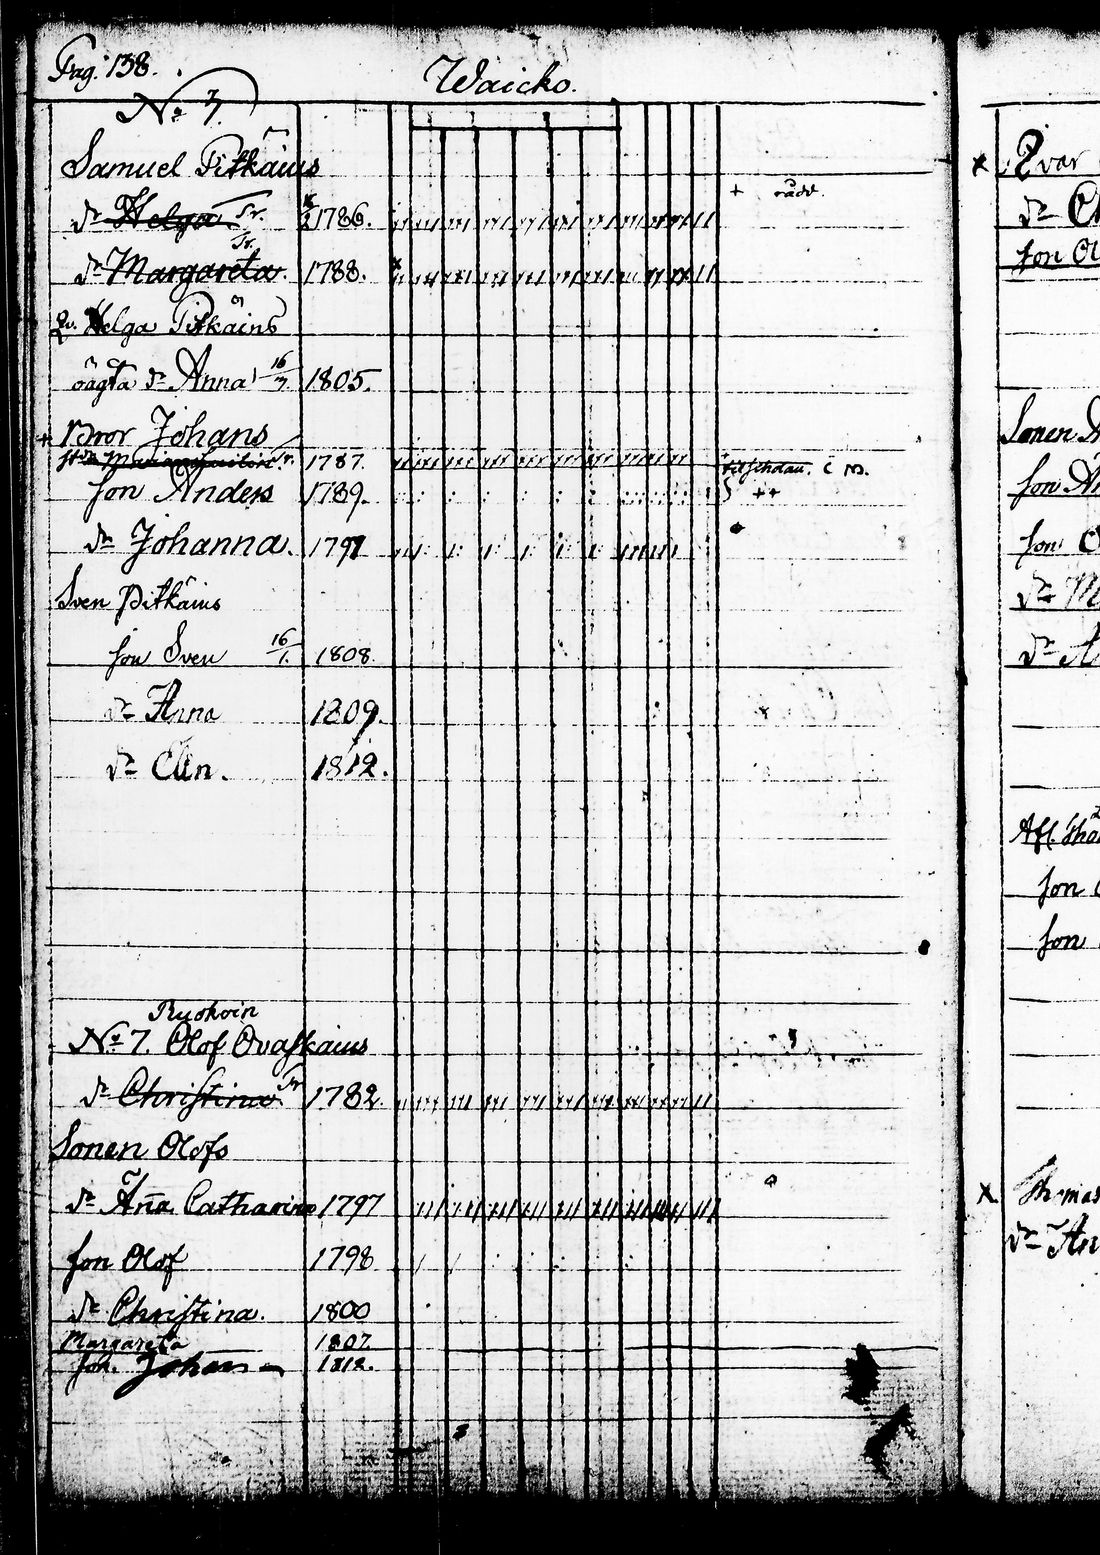 Pag. 138.
Waicko.
No 7.
Samuel Pitkäins
dr Helga Tr. 1786. + rådd.
dr Margareta Tr. 1788.
Helga Pitkäins
oägta dr Anna 16/7 1805.
+ Bror Johans
1787.
son Anders 1789. ++
dr Johanna. 1791
Sven Pitkäins
son Sven 16/1. 1808.
dr Anna 1809.
dr Elin. 1812.
No 7. Olof Ovaskains
dr Christina Tr 1782.
Sonen Olofs
dr Aña Catharina 1797
son Olof 1798
dr Christina. 1800
Margareta 1807.
son. Johan 1812.
x Ivar
dr
son Ol
Sonen
son An
son
dr
dr
son
son
x Thomas
dr An